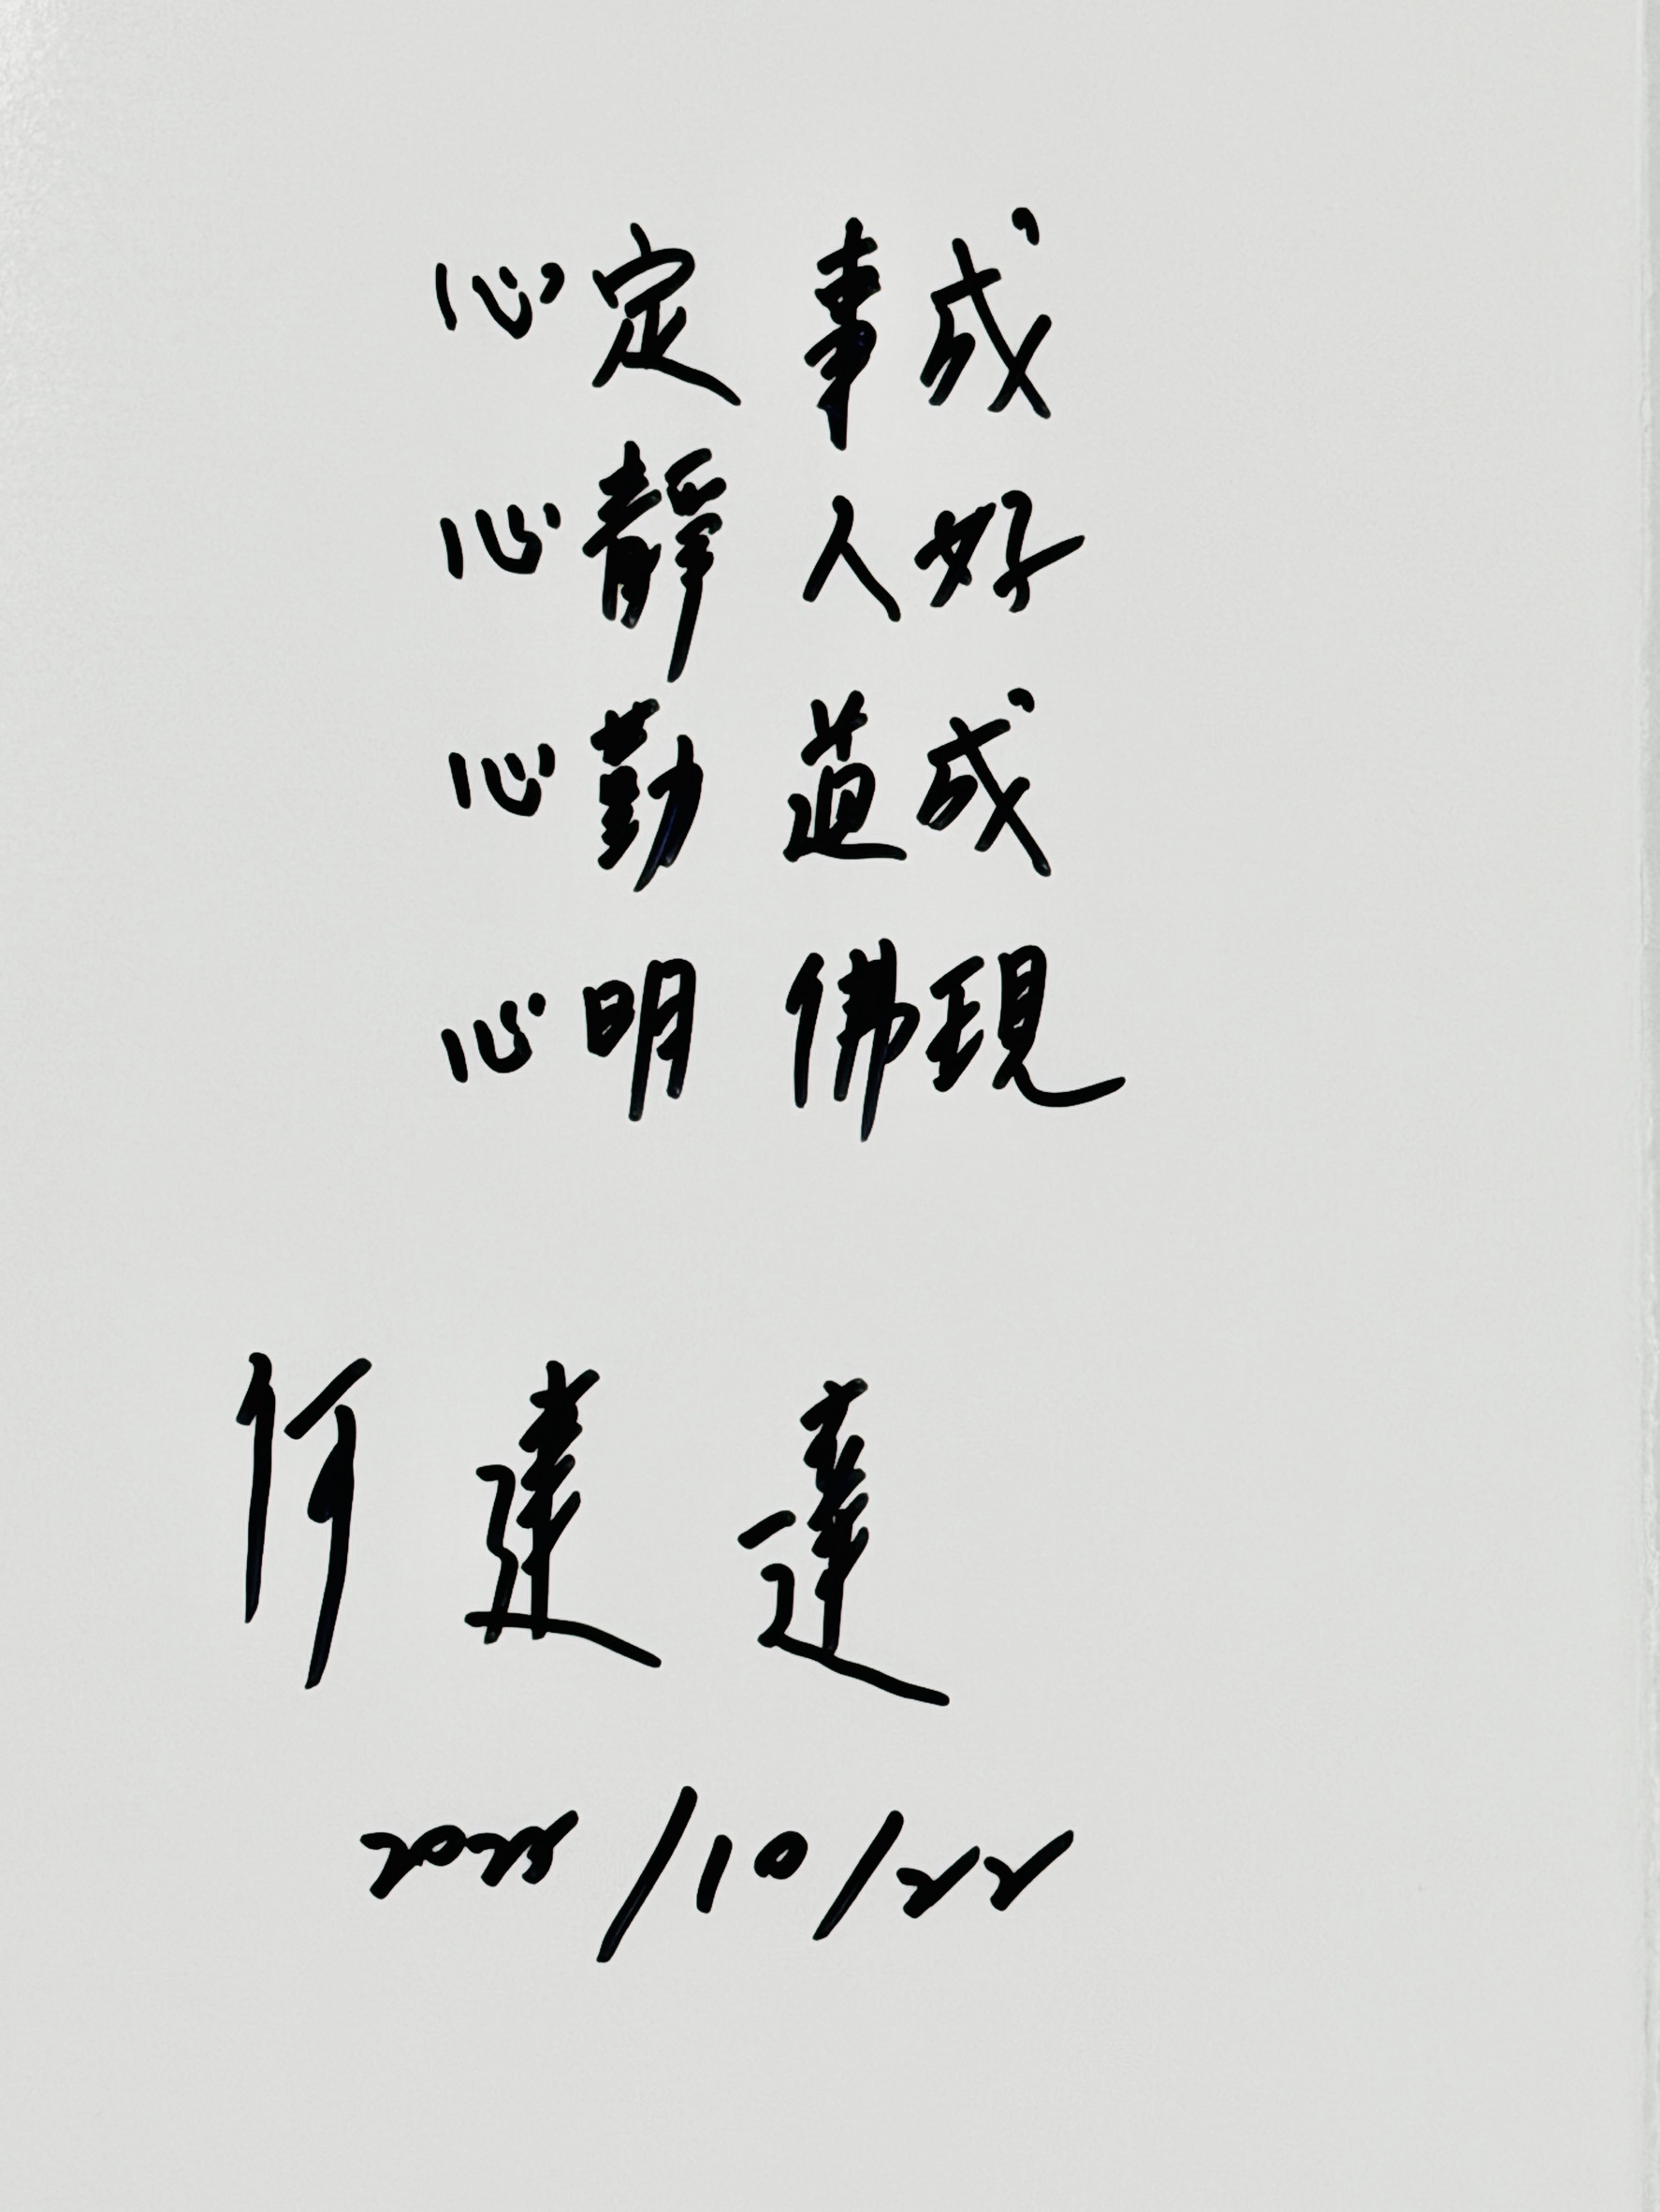 心定 事成
心靜 人好
心勤 道成
心明 佛現
何建達
2025/10/22